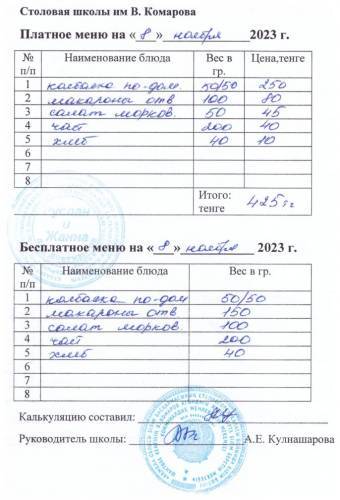 Столовая школы им В. Комарова
Платное меню на « 8 » ноября 2023 г.
№ п/п Наименование блюда Вес в гр. Цена,тенге
1 колбаска по-дом. 50/50 250
2 макароны отв 100 80
3 салат морков. 50 45
4 чай 200 40
5 хлеб 40 10
6
7
8
Итого: тенге 425 тг
Руслан и Жанна
Бесплатное меню на « 8 » ноября 2023 г.
№ п/п Наименование блюда Вес в гр.
1 колбаска по-дом 50/50
2 макароны отв 150
3 салат морков. 100
4 чай 200
5 хлеб 40
6
7
8
Калькуляцию составил:
Руководитель школы: А.Е. Кулнашарова